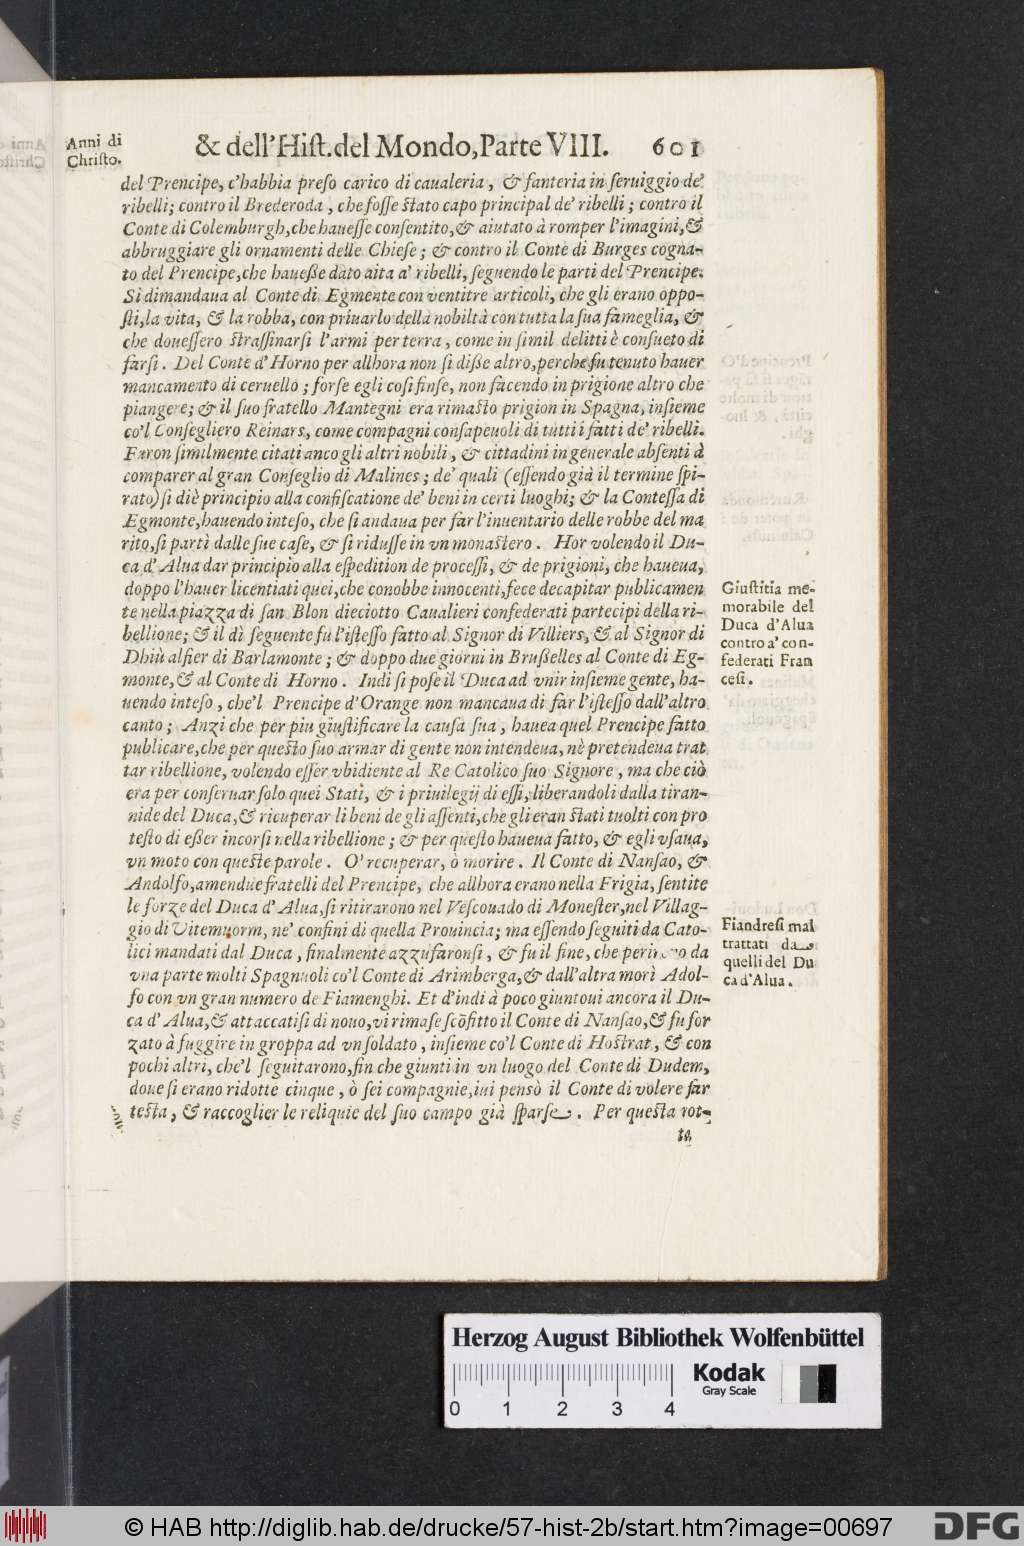 Anni di
Christo.
& dell'Hiſt. del Mondo, Parte VIII. 601
del Prencipe, c'habbia preſo carico di caualeria, & fanteria in ſeruiggio de'
ribelli; contro il Brederoda, che foſſe ſtato capo principal de' ribelli; contro il
Conte di Colemburgh, che haueſſe conſentito, & aiutato à romper l'imagini, &
abbruggiare gli ornamenti delle Chieſe; & contro il Conte di Burges cogna-
to del Prencipe, che haueße dato aita a' ribelli, ſeguendo le parti del Prencipe.
Si dimandaua al Conte di Egmente con ventitre articoli, che gli erano oppo-
ſti, la vita, & la robba, con priuarlo della nobiltà con tutta la ſua fameglia, &
che doueſſero ſtraſſinarſi l'armi per terra, come in ſimil delitti è conſueto di
farſi. Del Conte d'Horno per allhora non ſi diße altro, perche fu tenuto hauer
mancamento di ceruello; forſe egli coſi finſe, non facendo in prigione altro che
piangere; & il ſuo fratello Mantegni era rimaſto prigion in Spagna, inſieme
co'l Conſegliero Reinars, come compagni conſapeuoli di tutti i fatti de' ribelli.
Furon ſimilmente citati anco gli altri nobili, & cittadini in generale abſenti à
comparer al gran Conſeglio di Malines; de' quali (eſſendo già il termine ſpi-
rato) ſi diè principio alla confiſcatione de' beni in certi luoghi; & la Conteſſa di
Egmonte, hauendo inteſo, che ſi andaua per far l'inuentario delle robbe del ma
rito, ſi partì dalle ſue caſe, & ſi riduſſe in vn monaſtero. Hor volendo il Du-
ca d'Alua dar principio alla eſpedition de proceſſi, & de prigioni, che haueua,
doppo l'hauer licentiati quei, che conobbe innocenti, fece decapitar publicamen
te nella piazza di ſan Blon dieciotto Caualieri confederati partecipi della ri-
bellione; & il dì ſeguente fu l'iſteſſo fatto al Signor di Villiers, & al Signor di
Dhiù alfier di Barlamonte; & doppo due giorni in Brußelles al Conte di Eg-
monte, & al Conte di Horno. Indi ſi poſe il Duca ad vnir inſieme gente, ha-
uendo inteſo, che'l Prencipe d'Orange non mancaua di far l'iſteſſo dall'altro
canto; Anzi che per piu giuſtificare la cauſa ſua, hauea quel Prencipe fatto
publicare, che per queſto ſuo armar di gente non intendeua, nè pretendeua trat
tar ribellione, volendo eſſer vbidiente al Re Catolico ſuo Signore, ma che ciò
era per conſeruar ſolo quei Stati, & i priuilegij di eſſi, liberandoli dalla tiran-
nide del Duca, & ricuperar li beni de gli aſſenti, che gli eran ſtati tuolti con pro
teſto di eßer incorſi nella ribellione; & per queſto haueua fatto, & egli vſaua,
vn moto con queſte parole. O' recuperar, ò morire. Il Conte di Nanſao, &
Andolfo, amendue fratelli del Prencipe, che allhora erano nella Frigia, ſentite
le forze del Duca d'Alua, ſi ritirarono nel Veſcouado di Moneſter, nel Villag-
gio di Vitemuorm, ne' confini di quella Prouincia; ma eſſendo ſeguiti da Cato-
lici mandati dal Duca, finalmente azzufaronſi, & fu il fine, che perirono da
vna parte molti Spagnuoli co'l Conte di Arimberga, & dall'altra morì Adol-
fo con vn gran numero de Fiamenghi. Et d'indi à poco giuntoui ancora il Du-
ca d'Alua, & attaccatiſi di nouo, vi rimaſe ſcõfitto il Conte di Nanſao, & fu for
zato à fuggire in groppa ad vn ſoldato, inſieme co'l Conte di Hoſtrat, & con
pochi altri, che'l ſeguitarono, fin che giunti in vn luogo del Conte di Dudem,
doue ſi erano ridotte cinque, ò ſei compagnie, iui pensò il Conte di volere far
teſta, & raccoglier le reliquie del ſuo campo già ſparſe. Per queſta rot-
ta
Giuſtitia me-
morabile del
Duca d'Alua
contro a' con-
federati Fran
ceſi.
Fiandreſi mal
trattati da
quelli del Du
ca d'Alua.
Herzog August Bibliothek Wolfenbüttel
0 1 2 3 4
Kodak
Gray Scale
© HAB http://diglib.hab.de/drucke/57-hist-2b/start.htm?image=00697
DFG